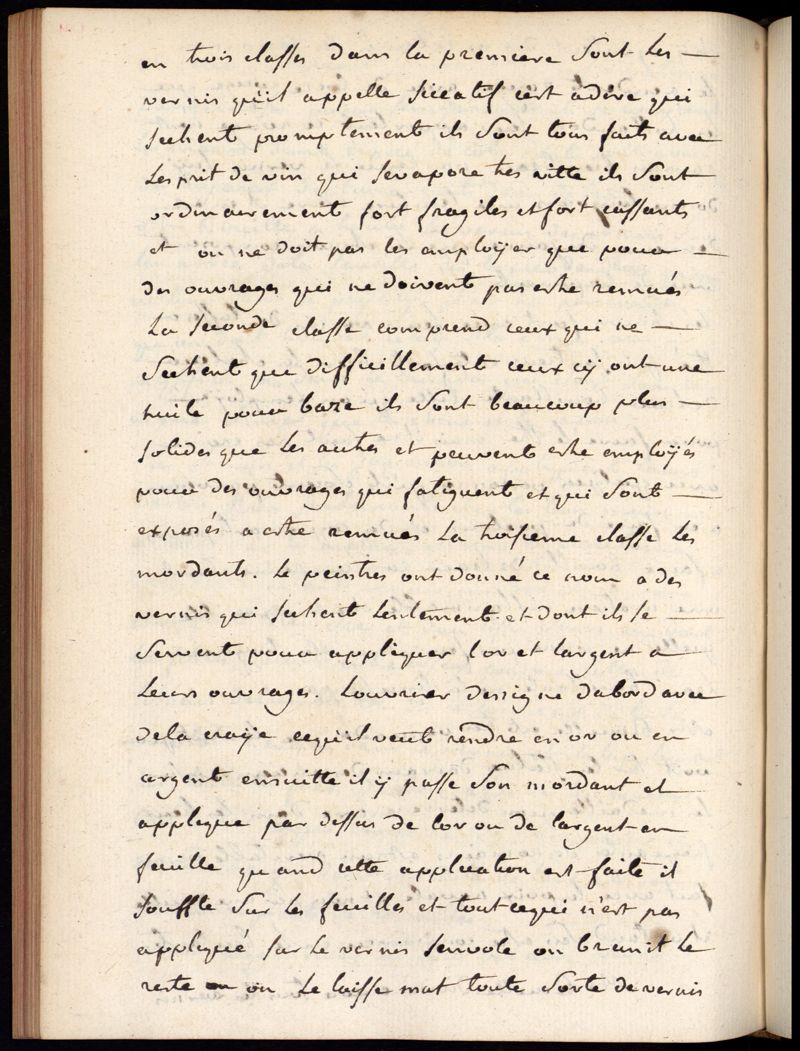 en trois classes dans la premiere sont les —
vernis qu'il appelle siccatif cest adire qui
sechent promptement ils sont tous faits avec
lesprit de vin qui sevapore tres vitte ils sont
ordinairement fort fragiles et fort cassants
et on ne doit pas les employer que pour —
des ouvrages qui ne doivent pas estre remués
La seconde classe comprend ceux qui ne —
sechent que difficillement ceux cÿ ont une
huile pour baze ils sont beaucoup plus —
solides que les autres et peuvent estre emploÿés
pour des ouvrages qui fatiguent et qui sont —
exposés a estre remués La troisieme classe les
mordants. Le peintres ont donné ce nom a des
vernis qui sechent lentement et dont ils se —
servent pour appliquer l'or et largent a —
leurs ouvrages. Louvrier dessigne dabord avec
dela craÿe cequil veut rendre en or ou en
argent ensuitte il ÿ passe son mordant et —
applique par dessus de lor ou de largent en
feuille quand cette application est faite il
souffle sur les feuilles et tout cequi n'est pas
appliqué sur le vernis senvole on brunit le
reste ou on le laisse mat toute sorte de vernis